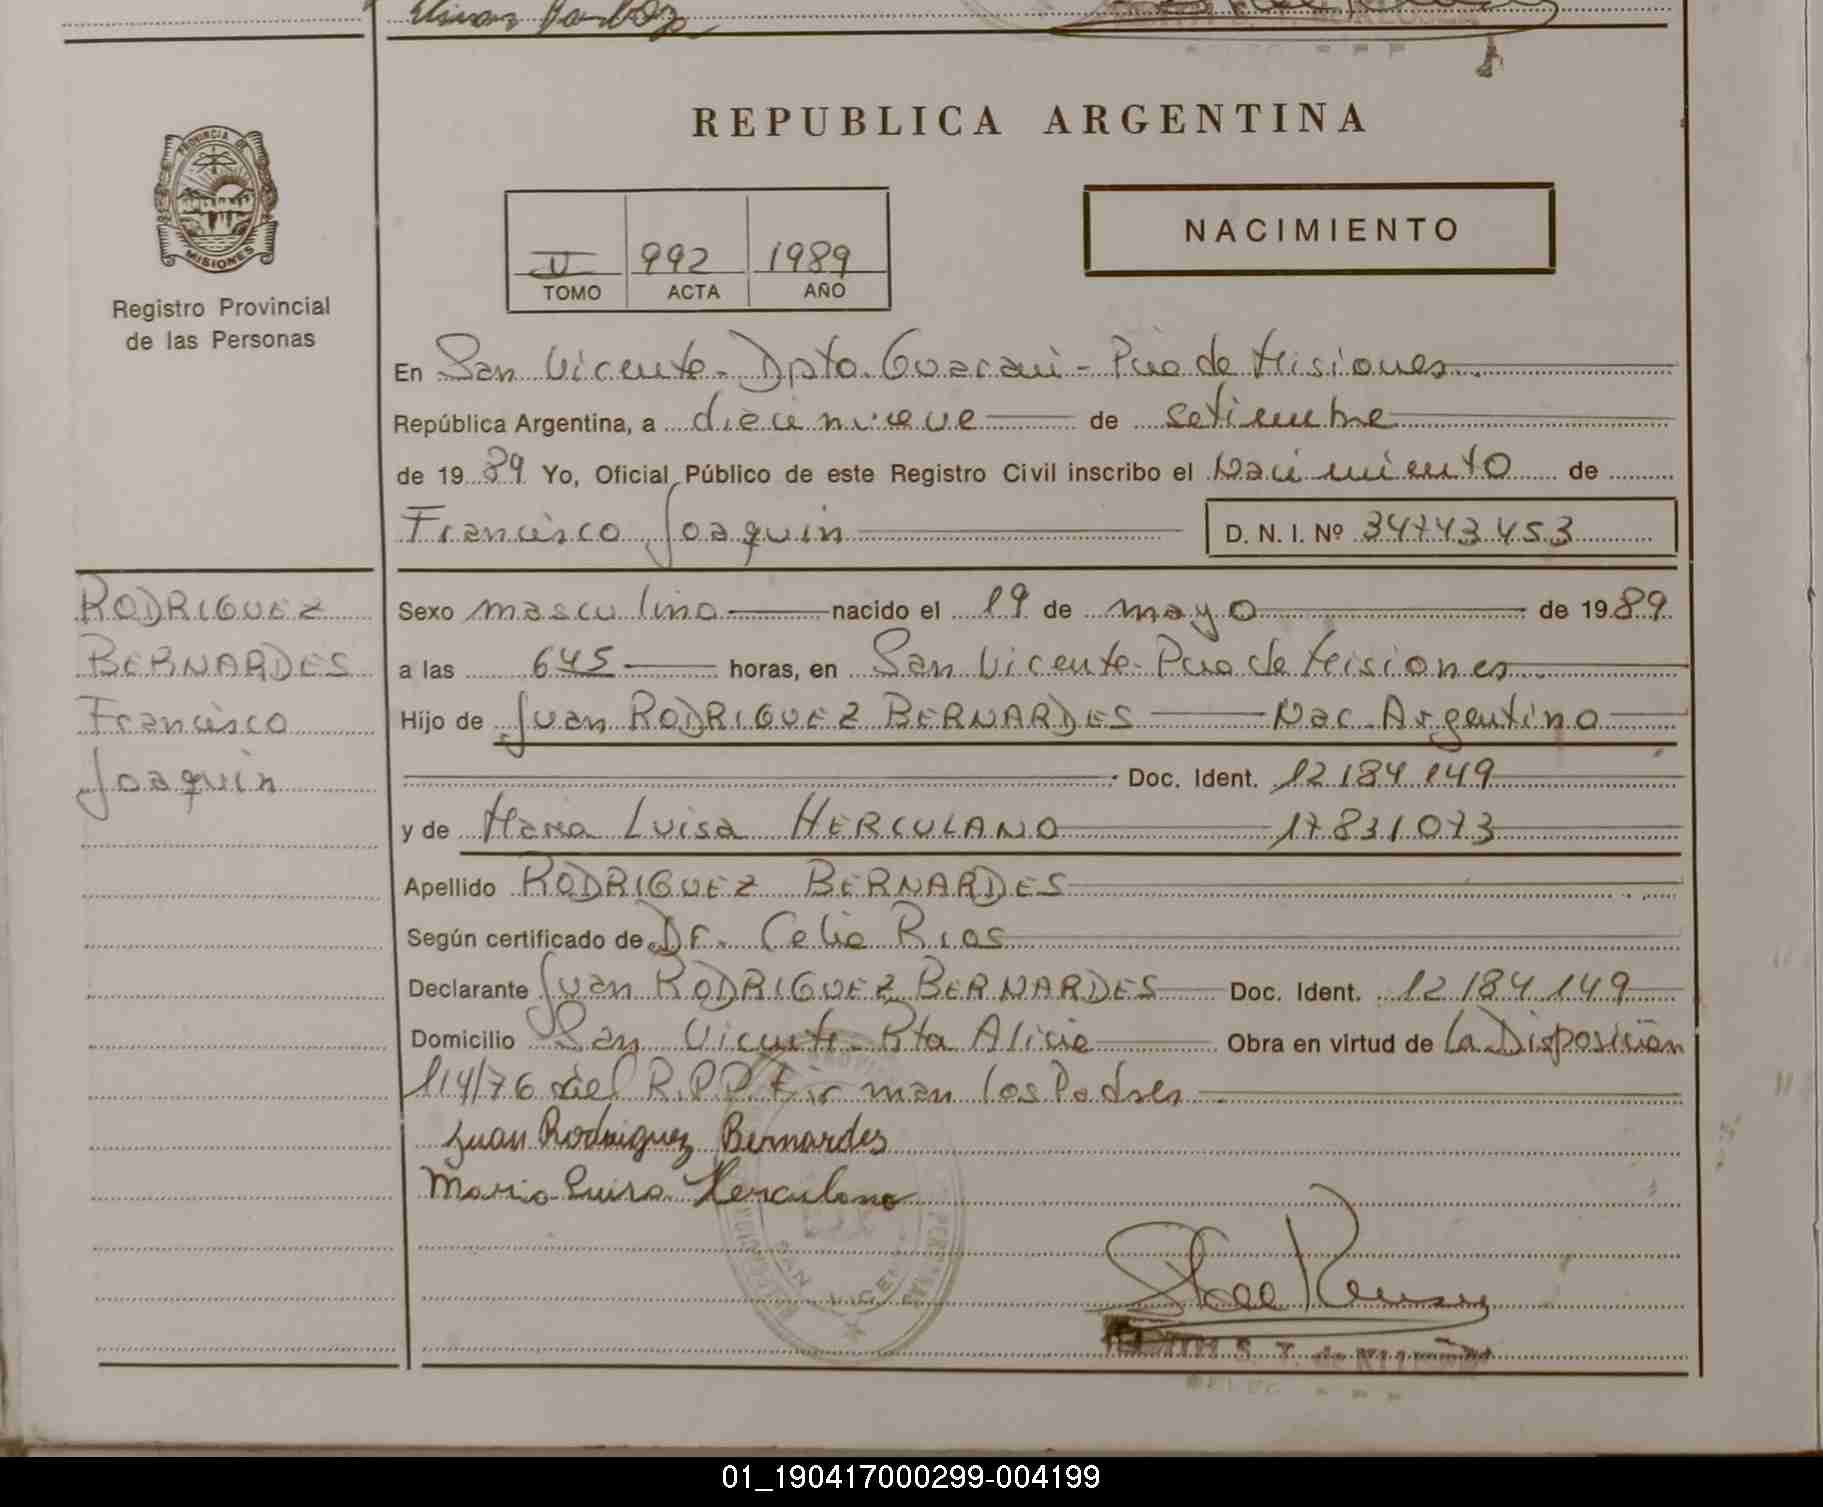 REPUBLICA ARGENTINA
PROVINCIA DE
MISIONES
Registro Provincial
de las Personas
V 992 1989
TOMO ACTA AÑO
NACIMIENTO
En San Vicente - Dpto. Guarani - Pcia de Misiones
República Argentina, a diecinueve de setiembre
de 1989 Yo, Oficial Público de este Registro Civil inscribo el Nacimiento de
Francisco Joaquin D. N. I. Nº 34743453
RODRIGUEZ
BERNARDES
Francisco
Joaquin
Sexo masculino nacido el 19 de mayo de 1989
a las 645 horas, en San Vicente - Pcia de Misiones
Hijo de Juan RODRIGUEZ BERNARDES Nac. Argentino
Doc. Ident. 12.184.149
y de Maria Luisa HERCULANO 17831073
Apellido RODRIGUEZ BERNARDES
Según certificado de Dr. Celio Rios
Declarante Juan RODRIGUEZ BERNARDES Doc. Ident. 12.184.149
Domicilio San Vicente - Pta Alicia Obra en virtud de La Disposición
114/76 del R.P.P. Firman los Padres
Juan Rodriguez Bernardes
Maria Luisa Herculano
SAN VICENTE
01_190417000299-004199